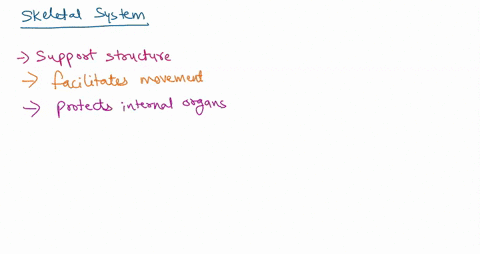 Skeletal System
-> Support structure
-> facilitates movement
-> protects internal organs